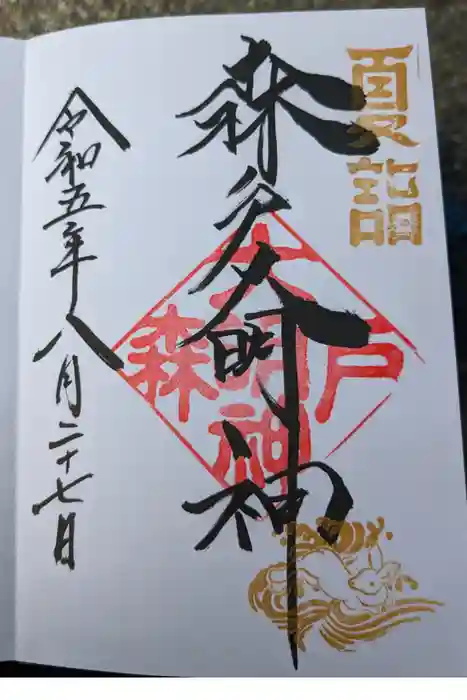 夏詣
森戸大明神
森戸
大明神
令和五年八月二十七日